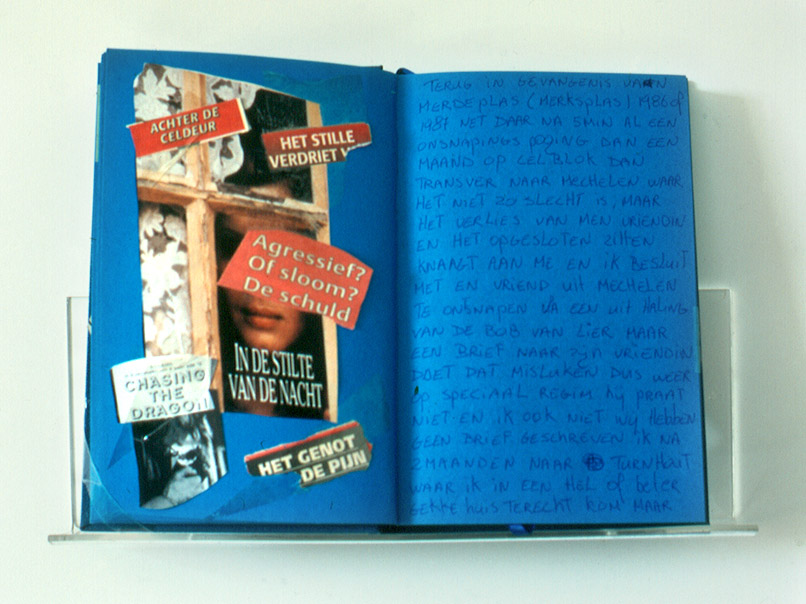 ACHTER DE
CELDEUR
HET STILLE
VERDRIET V
Agressief?
Of sloom?
De schuld
IN DE STILTE
VAN DE NACHT
CHASING
THE
DRAGON
HET GENOT
DE PIJN
TERUG IN GEVANGENIS VAN
MERDEPLAS (MERKSPLAS) 1986 of
1987 NET DAAR NA 5MIN AL EEN
ONSNAPINGS POGING DAN EEN
MAAND OP CELBLOK DAN
TRANSVER NAAR MECHELEN WAAR
HET NIET ZO SLECHT IS, MAAR
HET VERLIES VAN MEN VRIENDIN
EN HET OPGESLOTEN ZITTEN
KNAAGT AAN ME EN ik BESLUIT
MET EN VRIEND uit MECHELEN
TE ONTSNAPEN VIA EEN uit HALING
VAN DE BOB VAN LIER MAAR
EEN BRIEF NAAR ZijN VRIENDIN
DOET DAT MISLUKEN DUS WEER
op SPECIAAL REGIM hij PRAAT
NIET EN ik OOK NIET wij HEBBEN
GEEN BRIEF GESCHREVEN ik NA
2MAANDEN NAAR TURNHOUT
WAAR ik IN EEN HEL of beter
GEKKE huis TERECHT KOM MAAR